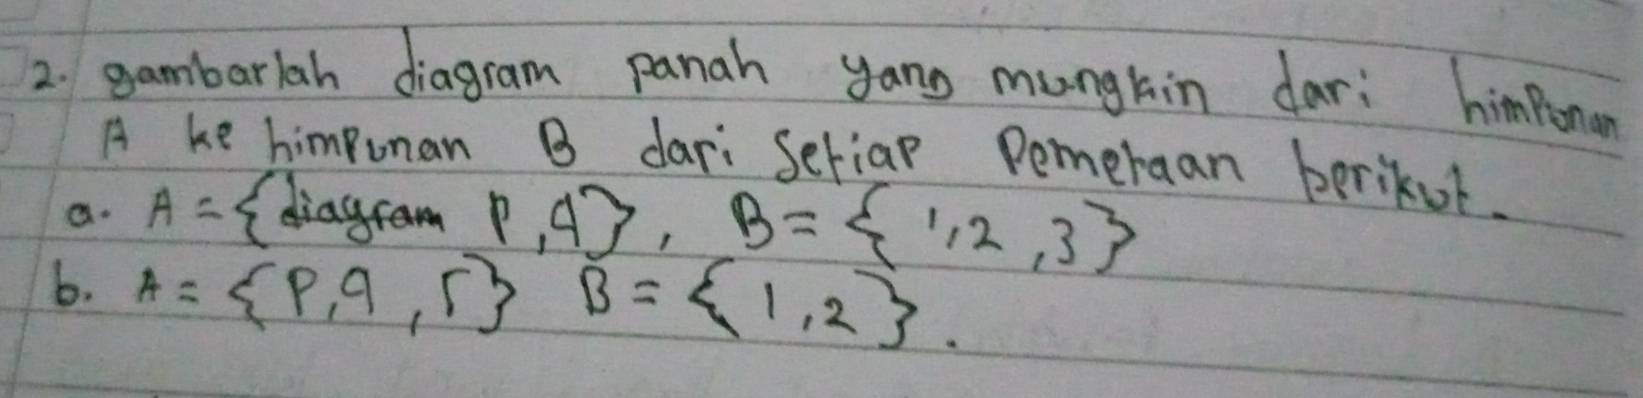 2. gambarlah diagram panah yang mungkin dari himpunan
A ke himpunan B dari setiap Pemetaan berikut.
a. A = {diagram P, q}, B = {1, 2, 3}
b. A = {P, q, r} B = {1, 2}.